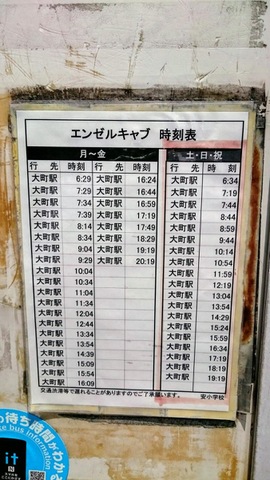 エンゼルキャブ 時刻表
月～金 土・日・祝
行 先 時 刻 行 先 時 刻 行 先 時 刻
大町駅 6:29 大町駅 16:24 大町駅 6:34
大町駅 7:29 大町駅 16:44 大町駅 7:19
大町駅 7:34 大町駅 16:59 大町駅 7:44
大町駅 7:39 大町駅 17:19 大町駅 8:44
大町駅 8:14 大町駅 17:49 大町駅 8:59
大町駅 8:34 大町駅 18:29 大町駅 9:44
大町駅 9:04 大町駅 19:19 大町駅 10:14
大町駅 9:29 大町駅 20:19 大町駅 10:54
大町駅 10:04 大町駅 11:59
大町駅 10:34 大町駅 12:19
大町駅 11:04 大町駅 13:04
大町駅 11:34 大町駅 13:54
大町駅 12:04 大町駅 14:29
大町駅 12:44 大町駅 15:24
大町駅 13:34 大町駅 15:59
大町駅 13:54 大町駅 16:34
大町駅 14:39 大町駅 17:19
大町駅 15:09 大町駅 18:19
大町駅 15:54 大町駅 19:19
大町駅 16:09
交通渋滞等で遅れることがありますのでご了承願います。 安小学校
の待ち時間がわか
bus information
it